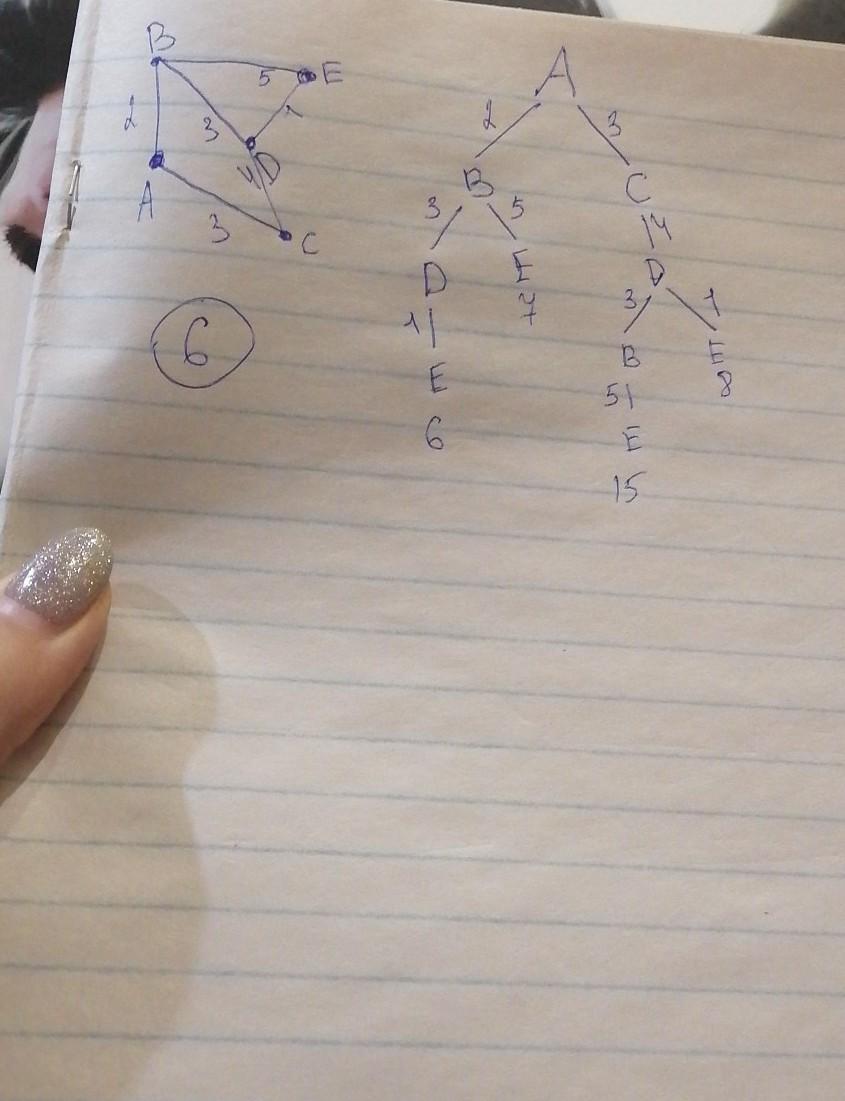 B
5 E
2
3 1
4 D
A
3 C
6
A
2 3
B C
3 5 4
D E D
7
1 3 1
E B E
8
6 5
E
15